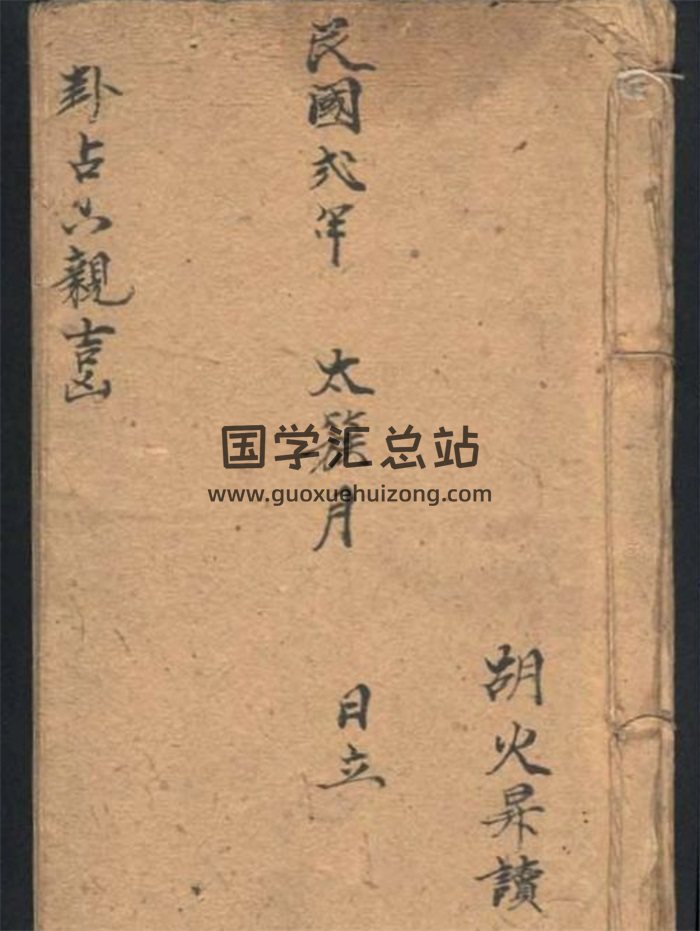 胡火昇讀
民國弍年 太簇月 日立
卦占六親吉凶
国学汇总站
www.guoxuehuizong.com